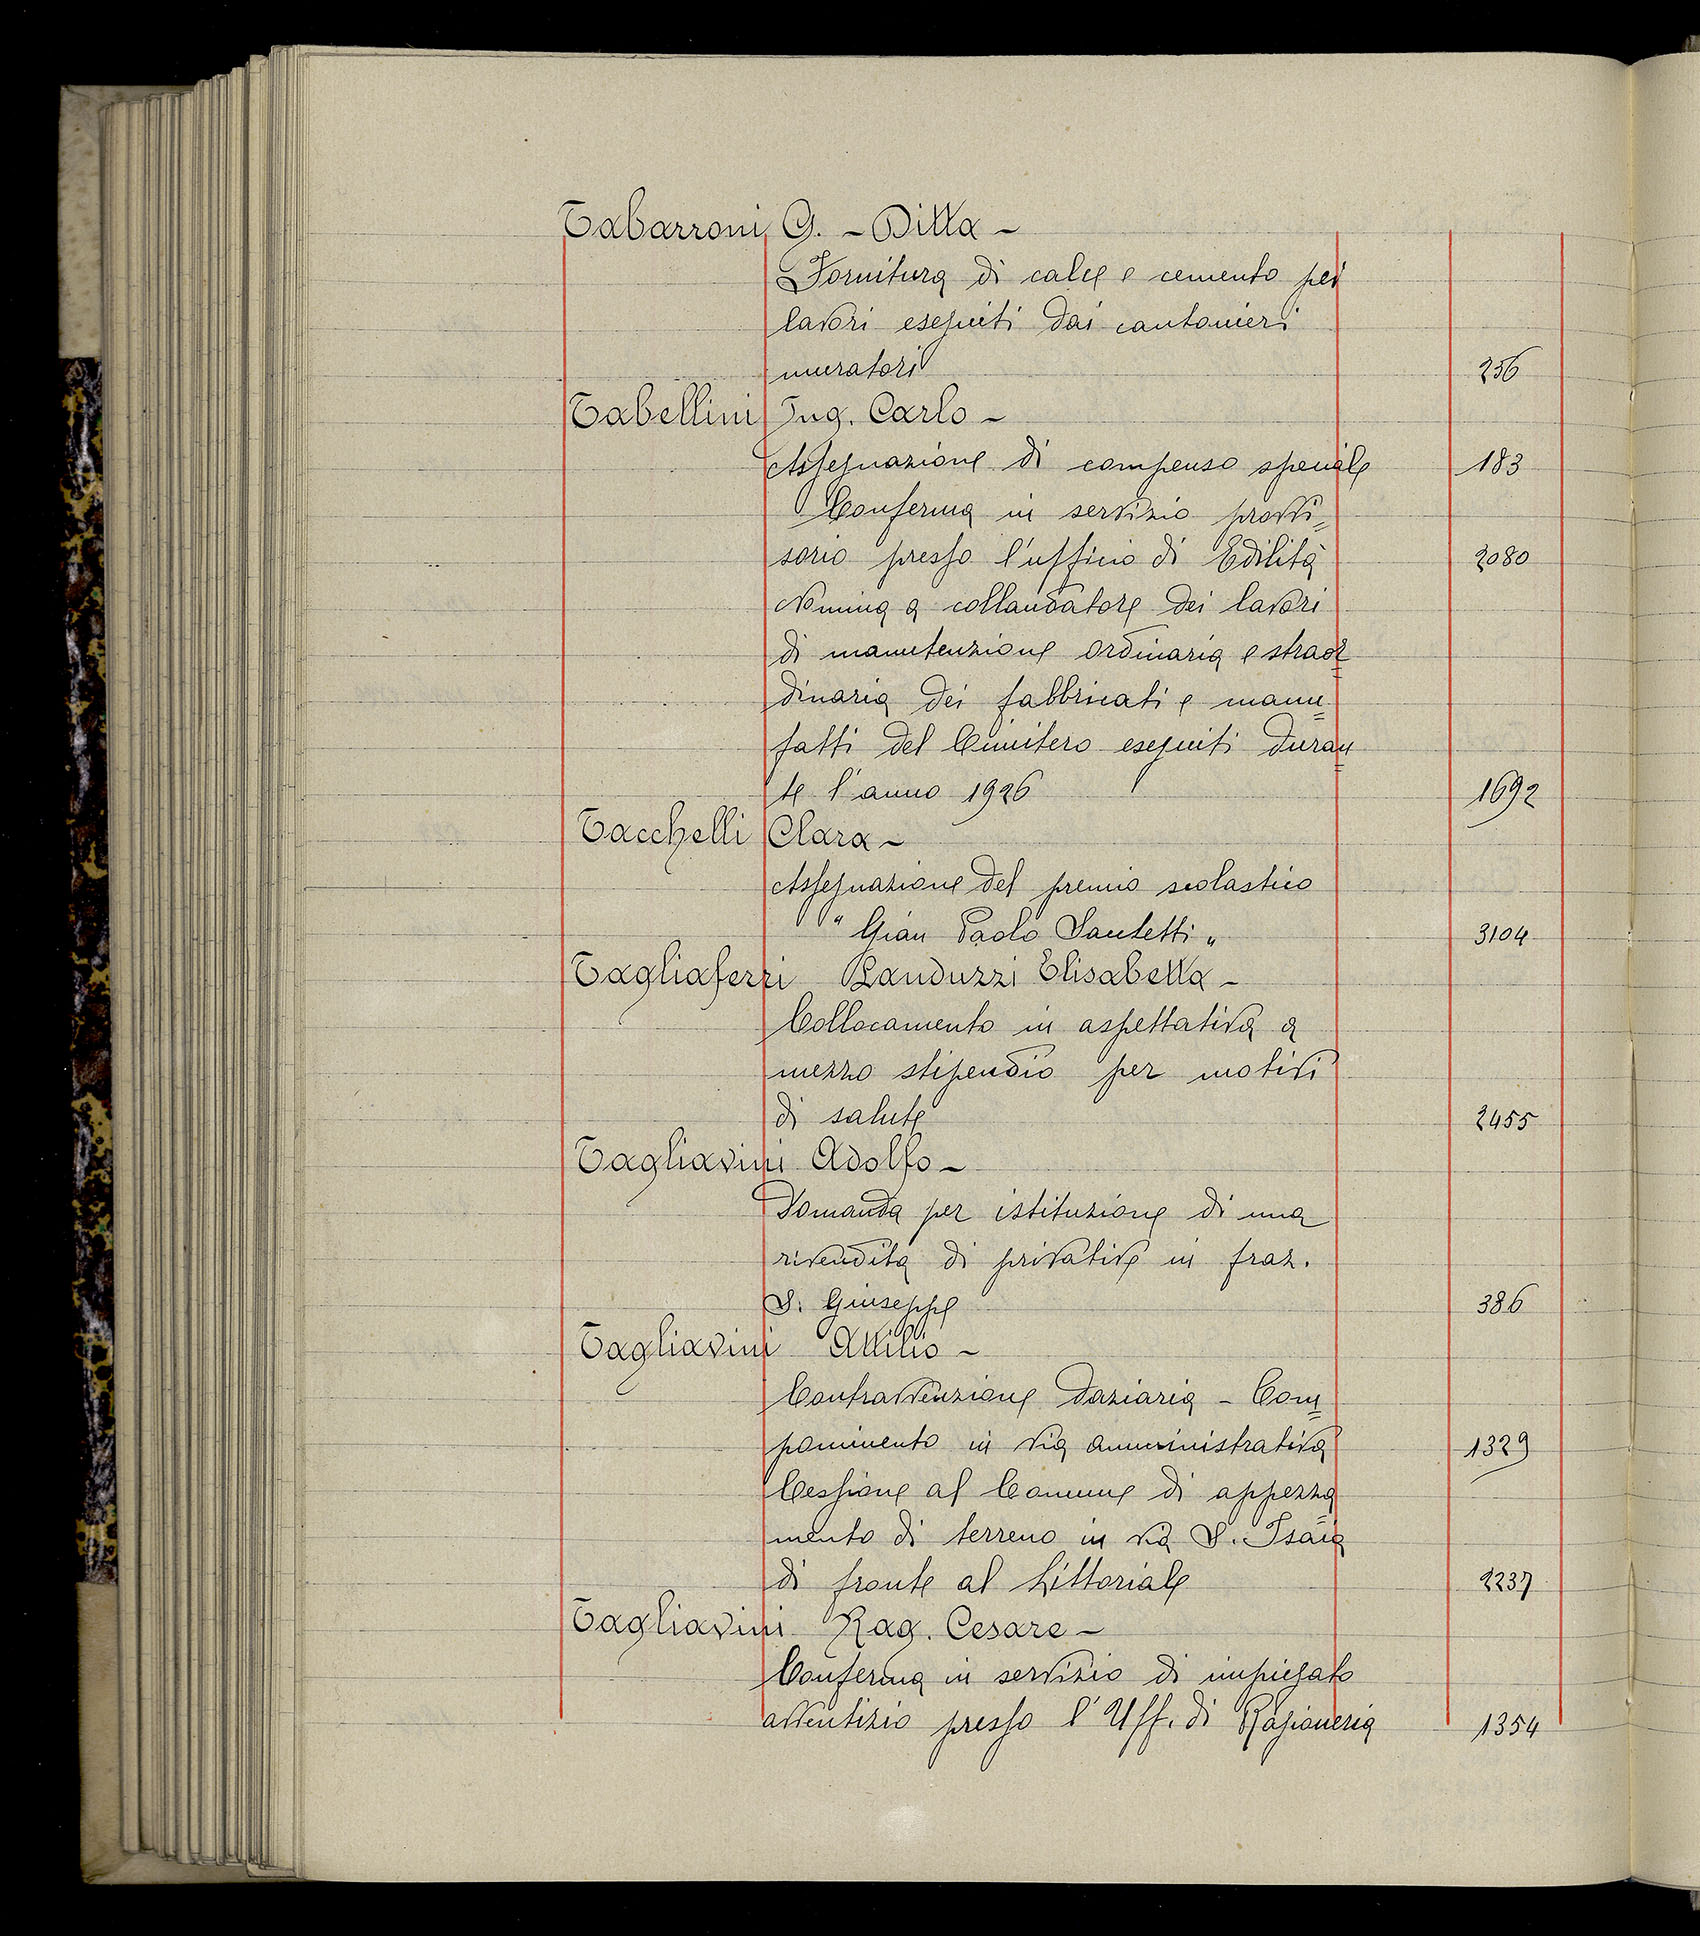 Tabarroni G. - Ditta -
Fornitura di calce e cemento pei
lavori eseguiti dai cantonieri
muratori 256
Tabellini Ing. Carlo -
Assegnazione di compenso speciale 183
Conferma in servizio provvi=
sorio presso l'ufficio di Edilità 2080
Nomina a collaudatore dei lavori
di manutenzione ordinaria e straor=
dinaria dei fabbricati e manu=
fatti del Cimitero eseguiti duran=
te l'anno 1926 1692
Tacchelli Clara -
Assegnazione del premio scolastico
"Gian Paolo Santetti" 3104
Tagliaferri Landuzzi Elisabetta -
Collocamento in aspettativa a
mezzo stipendio per motivi
di salute 2455
Tagliavini Adolfo -
Domanda per istituzione di una
rivendita di privative in fraz.
S. Giuseppe 386
Tagliavini Attilio -
Contravvenzione daziaria - Com=
ponimento in via amministrativa 1329
Cessione al Comune di appezza=
mento di terreno in via S. Isaia
di fronte al Littoriale 2237
Tagliavini Rag. Cesare -
Conferma in servizio di impiegato
avventizio presso l'Uff. di Ragioneria 1354